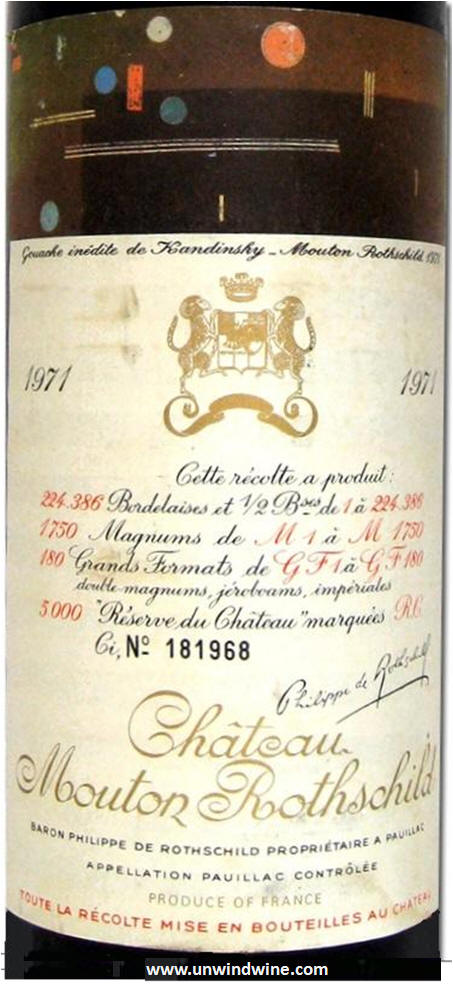 Gouache inédite de Kandinsky - Mouton Rothschild 1971
1971 1971
Cette récolte a produit:
224.386 Bordelaises et 1/2 Bses de 1 à 224.386
1750 Magnums de M 1 à M 1750
180 Grands Formats de G F 1 à G F 180
double-magnums, jéroboams, impériales
5.000 "Réserve du Château" marquées R.C.
Ci, No 181968
Philippe de Rothschild
Château
Mouton Rothschild
BARON PHILIPPE DE ROTHSCHILD PROPRIÉTAIRE A PAUILLAC
APPELLATION PAUILLAC CONTRÔLÉE
PRODUCE OF FRANCE
TOUTE LA RÉCOLTE MISE EN BOUTEILLES AU CHÂTEAU
www.unwindwine.com